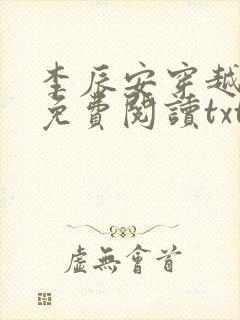 李辰安穿越
免費閱讀txt
虛無會首